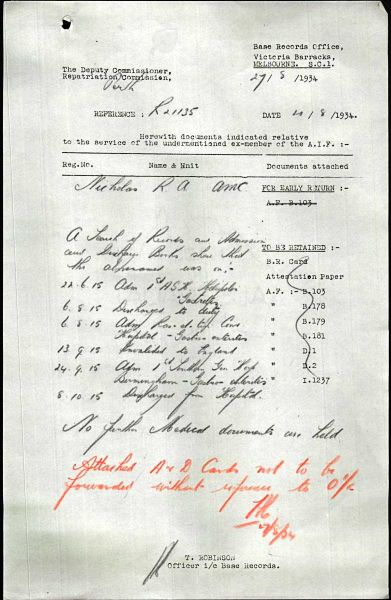 Base Records Office,
Victoria Barracks,
MELBOURNE. S.C.1.
The Deputy Commissioner,
Repatriation Commission,
Perth
27/8/1934
REFERENCE : R21135
DATE 21/8/1934.
Herewith documents indicated relative
to the service of the undermentioned ex-member of the A.I.F. :-
Reg.No. Name & Unit Documents attached
Nicholas R A AMC
FOR EARLY RETURN :-
A.F. B.103
A Search of Records and Admission
and Discharge Books show that
the abovenamed was in:-
22.6.15 Adm 1st A S H,
Gastritis
6.8.15 Discharged to duty
6.8.15 Adm Con
Hospital - Gastro enteritis
13.9.15 Invalided to England
24.9.15 Adm 1st Southern Gen Hosp
Birmingham - Gastro enteritis
8.10.15 Discharged from Hospital.
TO BE RETAINED :-
B.R. Card
Attestation Paper
A.F. :- B.103
" B.178
" B.179
" B.181
" D.1
" D.2
" I.1237
No further Medical documents are held.
Attached A & D Cards not to be
forwarded without reference to O i/c
T. ROBINSON
Officer i/c Base Records.